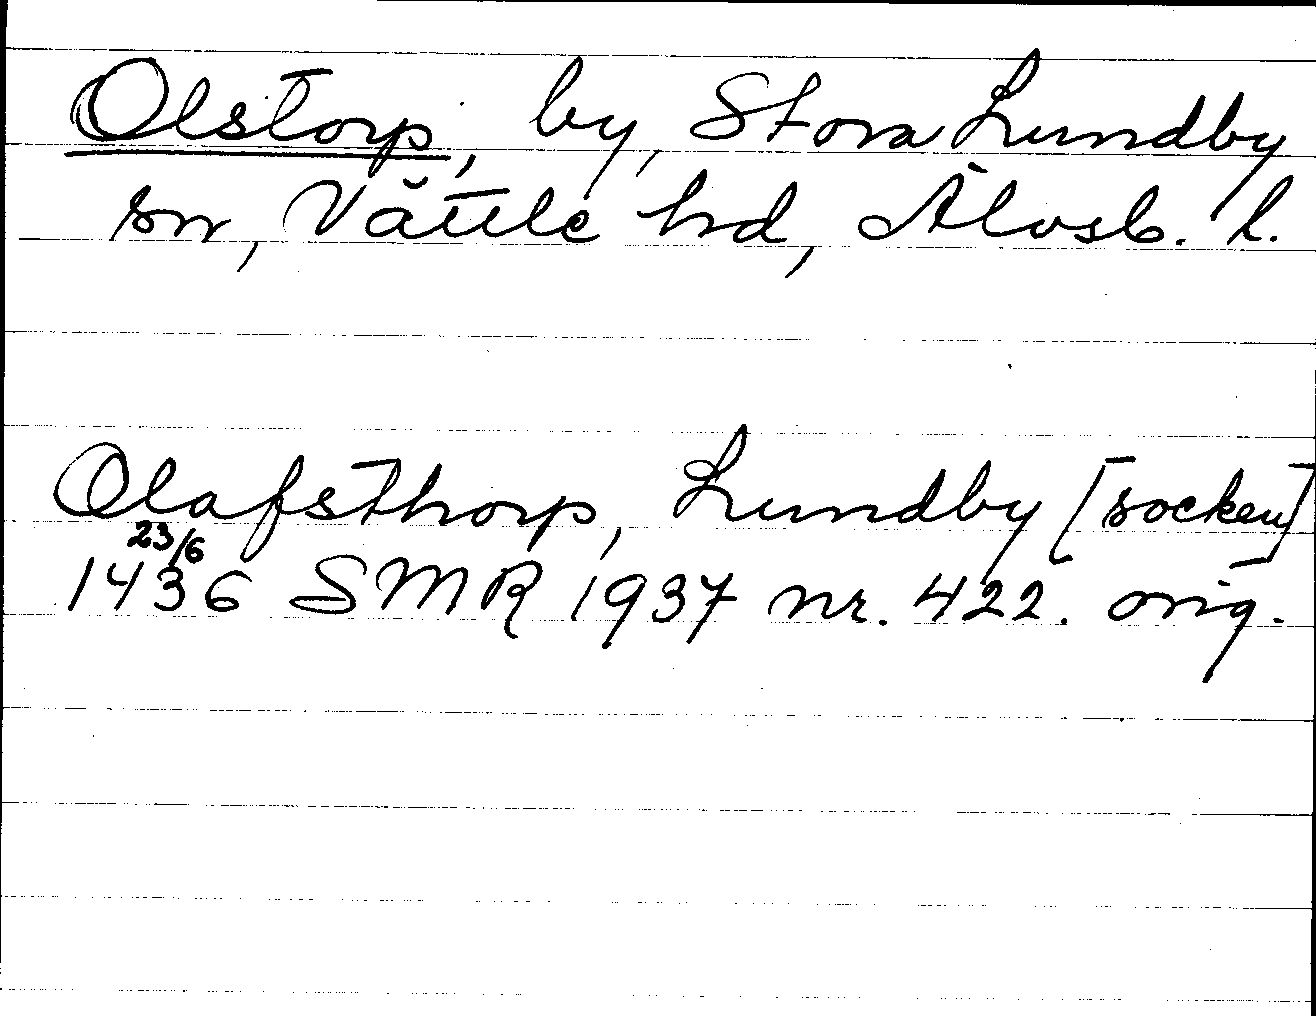 Olstorp, by, Stora Lundby
sn, Vättle hd, Älvsb. l.
Olafsthorp, Lundby [socken]
23/6
1436 SMR 1937 nr. 422. orig.